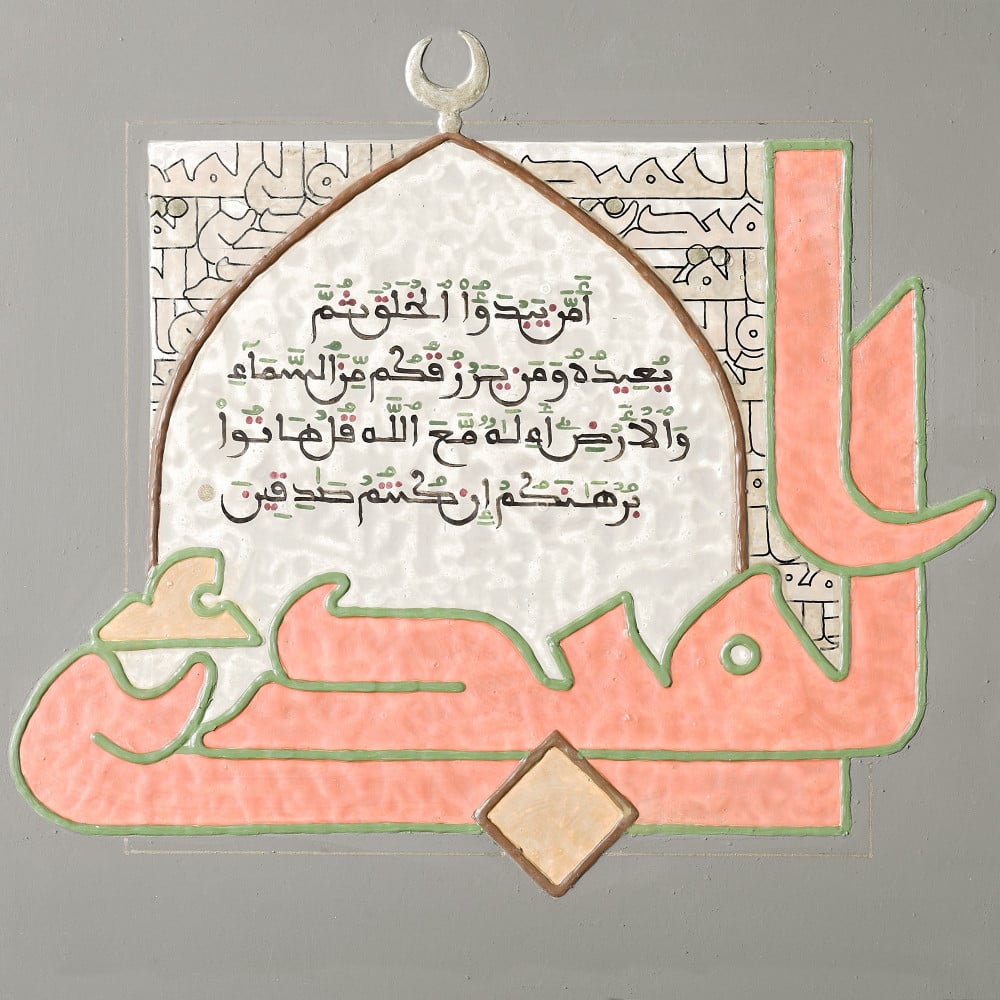 أَمَّن يَبْدَؤُاْ الْخَلْقَ ثُمَّ
يُعِيدُهُ وَمَن يَرْزُقُكُم مِّنَ السَّمَآءِ
وَالْأَرْضِ أَءِلَٰهٌ مَّعَ اللَّهِ قُلْ هَاتُواْ
بُرْهَٰنَكُمْ إِن كُنتُمْ صَٰدِقِينَ
المبدئ